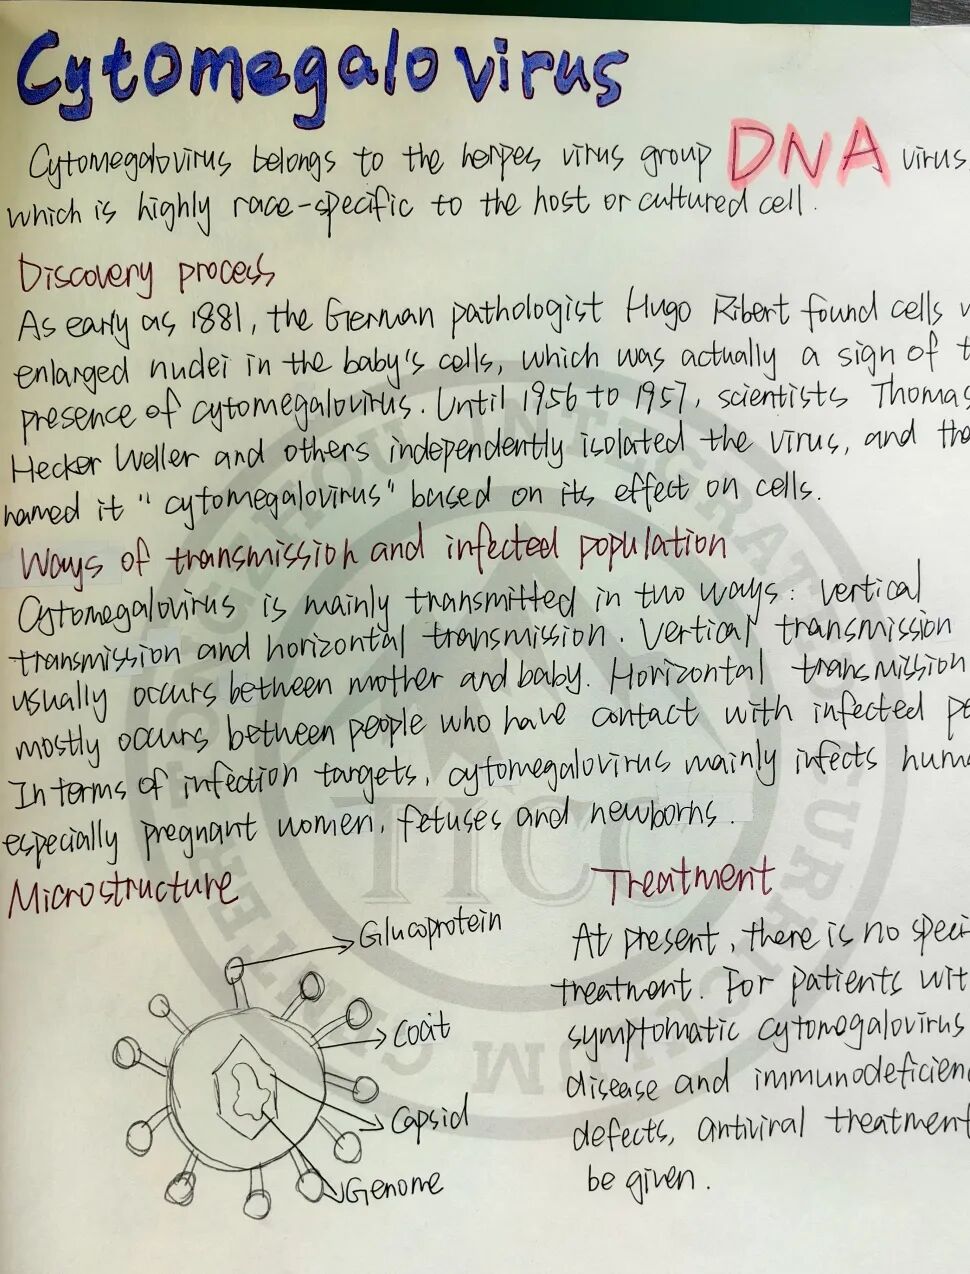 Cytomegalovirus
Cytomegalovirus belongs to the herpes virus group DNA virus
which is highly race-specific to the host or cultured cell.
Discovery process
As early as 1881, the German pathologist Hugo Ribert found cells
enlarged nudei in the baby's cells, which was actually a sign of
presence of cytomegalovirus. Until 1956 to 1957, scientists Thomas
Hecker Weller and others independently isolated the virus, and
named it "cytomegalovirus" based on its effect on cells.
Ways of transmission and infected population
Cytomegalovirus is mainly transmitted in two ways: vertical
transmission and horizontal transmission. Vertical transmission
usually occurs between mother and baby. Horizontal transmission
mostly occurs between people who have contact with infected
In terms of infection targets, cytomegalovirus mainly infects
especially pregnant women, fetuses and newborns.
Microstructure
Glucoprotein
Coat
Capsid
Genome
Treatment
At present, there is no
treatment. For patients
symptomatic cytomegalovirus
disease and
defects, antiviral treatment
be given.
TONGZHOU INTEGRATED CURRICULUM CENTER
TICC